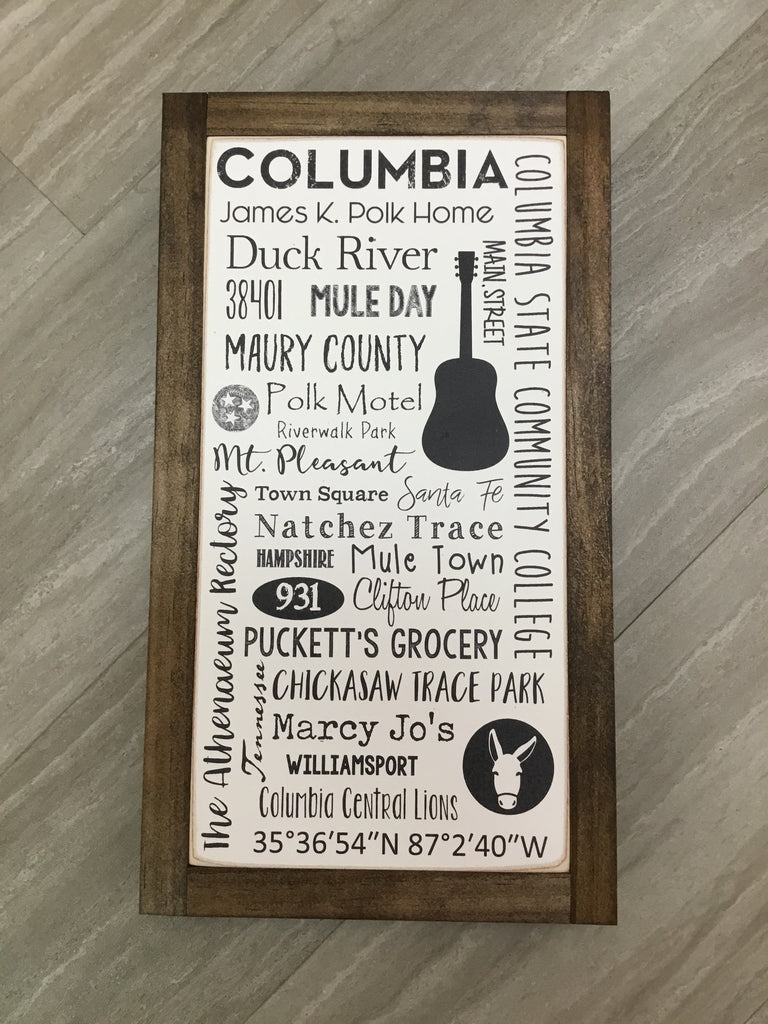 COLUMBIA
James K. Polk Home
Duck River
MAIN.STREET
COLUMBIA STATE COMMUNITY COLLEGE
38401 MULE DAY
MAURY COUNTY
Polk Motel
Riverwalk Park
Mt. Pleasant
Town Square Santa Fe
Natchez Trace
HAMPSHIRE Mule Town
931 Clifton Place
PUCKETT'S GROCERY
The Athenaeum Rectory
Tennessee
CHICKASAW TRACE PARK
Marcy Jo's
WILLIAMSPORT
Columbia Central Lions
35°36'54"N 87°2'40"W